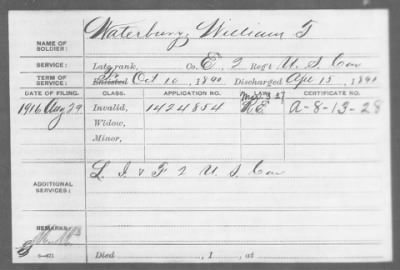 Waterbury, William T
NAME OF SOLDIER:
SERVICE: Late rank, Co. E, 2 Reg't U.S. Cav
TERM OF SERVICE: Enlisted Oct 10, 1890 Discharged Apr 15, 1891
DATE OF FILING. CLASS. APPLICATION NO. CERTIFICATE NO.
1916 Aug 29 Invalid, 1424854 R.E. A-8-13-28
Widow,
Minor,
ADDITIONAL SERVICES: L. I & F 2 U.S. Cav
REMARKS:
Died , 1 , at